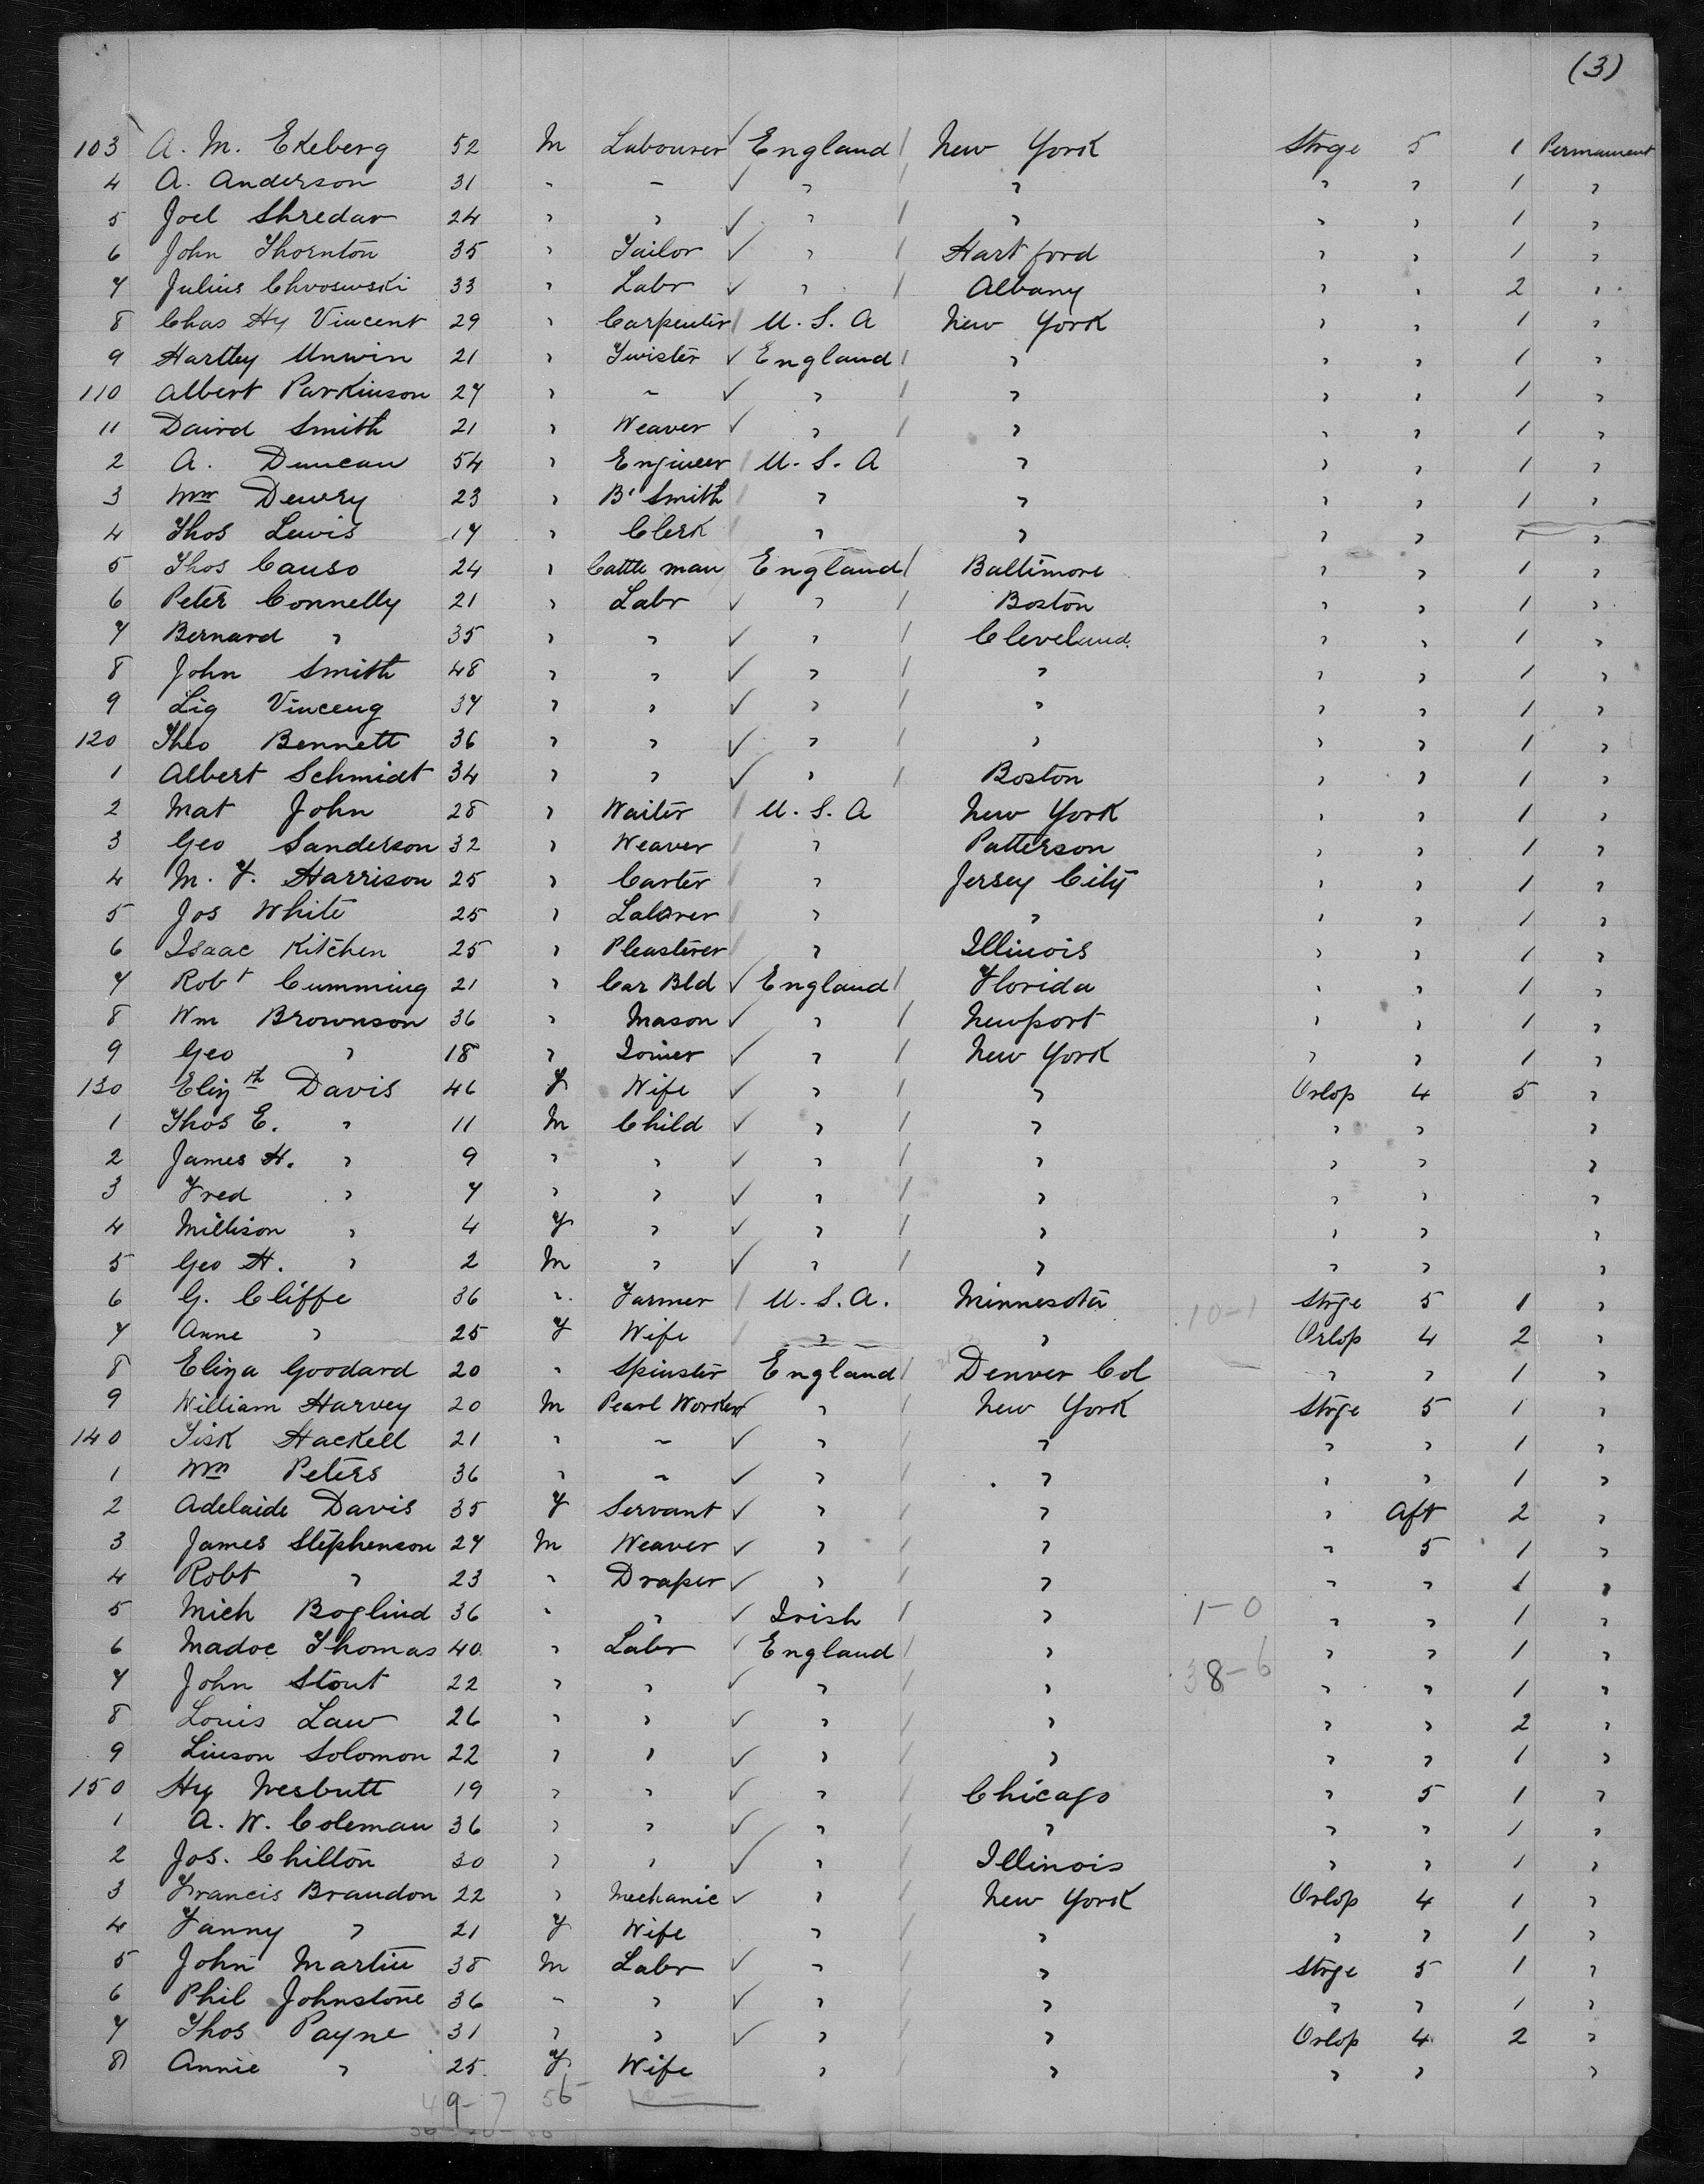 (3)
103 A. M. Ekeberg 52 M Labourer ✓ England / New York Strge 5 1 Permanent
4 A. Anderson 31 " " ✓ " " " " 1 "
5 Joel Shredar 24 " " ✓ " / " " " 1 "
6 John Thornton 35 " Tailor ✓ " / Hartford " " 1 "
7 Julius 33 " Labr ✓ " / Albany " " 2 "
8 Chas Hy Vincent 29 " Carpenter / U.S.A New York " " 1 "
9 Hartley Unwin 21 " Twister ✓ England / " " " 1 "
110 Albert Parkinson 27 " " ✓ " / " " " 1 "
11 David Smith 21 " Weaver ✓ " / " " " 1 "
2 A. Duncan 54 " Engineer / U.S.A " " " 1 "
3 Wm Dewry 23 " Bl Smith / " " " " 1 "
4 Thos Lewis 17 " Clerk / " " " " 1 "
5 Thos Causo 24 " Cattle man England / Baltimore " " 1 "
6 Peter Connelly 21 " Labr ✓ " / Boston " " 1 "
7 Bernard " 35 " " ✓ " / Cleveland " " 1 "
8 John Smith 48 " " ✓ " / " " " 1 "
9 Lig Vinceng 37 " " ✓ " / " " " 1 "
120 Theo Bennett 36 " " ✓ " / " " " 1 "
1 Albert Schmidt 34 " " ✓ " / Boston " " 1 "
2 Mat John 28 " Waiter / U.S.A New York " " 1 "
3 Geo Sanderson 32 " Weaver / " Patterson " " 1 "
4 M. F. Harrison 25 " Carter / " Jersey City " " 1 "
5 Jos White 25 " Laborer / " " " " 1 "
6 Isaac Kitchen 25 " Pleasterer / " Illinois " " 1 "
7 Robt Cumming 21 " Car Bld ✓ England / Florida " " 1 "
8 Wm Brownson 36 " Mason ✓ " / Newport " " 1 "
9 Geo " 18 " Joiner ✓ " / New York " " 1 "
130 Elizth Davis 46 F Wife ✓ " / " Orlop 4 5 "
1 Thos E. " 11 M Child ✓ " / " " " "
2 James H. " 9 " " ✓ " / " " " "
3 Fred " 7 " " ✓ " / " " " "
4 Millison " 4 F " ✓ " / " " " "
5 Geo H. " 2 M " ✓ " / " " " "
6 G. Cliffe 36 " Farmer / U.S.A. Minnesota 10-1 Strge 5 1 "
7 Anne " 25 F Wife / " " Orlop 4 2 "
8 Eliza Goodard 20 " Spinster England / Denver Col " " 1 "
9 William Harvey 20 M Pearl Worker ✓ " / New York Strge 5 1 "
140 Fisk Hackell 21 " " ✓ " / " " " 1 "
1 Wm Peters 36 " " ✓ " / " " " 1 "
2 Adelaide Davis 35 F Servant ✓ " / " " Aft 2 "
3 James Stephenson 27 M Weaver ✓ " / " " 5 1 "
4 Robt " 23 " Draper ✓ " / " " " 1 "
5 Mich Boglind 36 " " ✓ Irish / " 1-0 " " 1 "
6 Madoc Thomas 40 " Labr ✓ England / " " " 1 "
7 John Stout 22 " " ✓ " / " 38-6 " " 1 "
8 Louis Law 26 " " ✓ " / " " " 2 "
9 Linson Solomon 22 " " ✓ " / " " " 1 "
150 Hy Nesbutt 19 " " ✓ " / Chicago " 5 1 "
1 A. W. Coleman 36 " " ✓ " / " " " 1 "
2 Jos. Chilton 30 " " ✓ " / Illinois " " 1 "
3 Francis Brandon 22 " Mechanic ✓ " / New York Orlop 4 1 "
4 Fanny " 21 F Wife " / " " " 1 "
5 John Martin 38 M Labr ✓ " / " Strge 5 1 "
6 Phil Johnstone 36 " " ✓ " / " " " 1 "
7 Thos Payne 31 " " ✓ " / " Orlop 4 2 "
8 Annie " 25 F Wife " " " " "
49-7 56